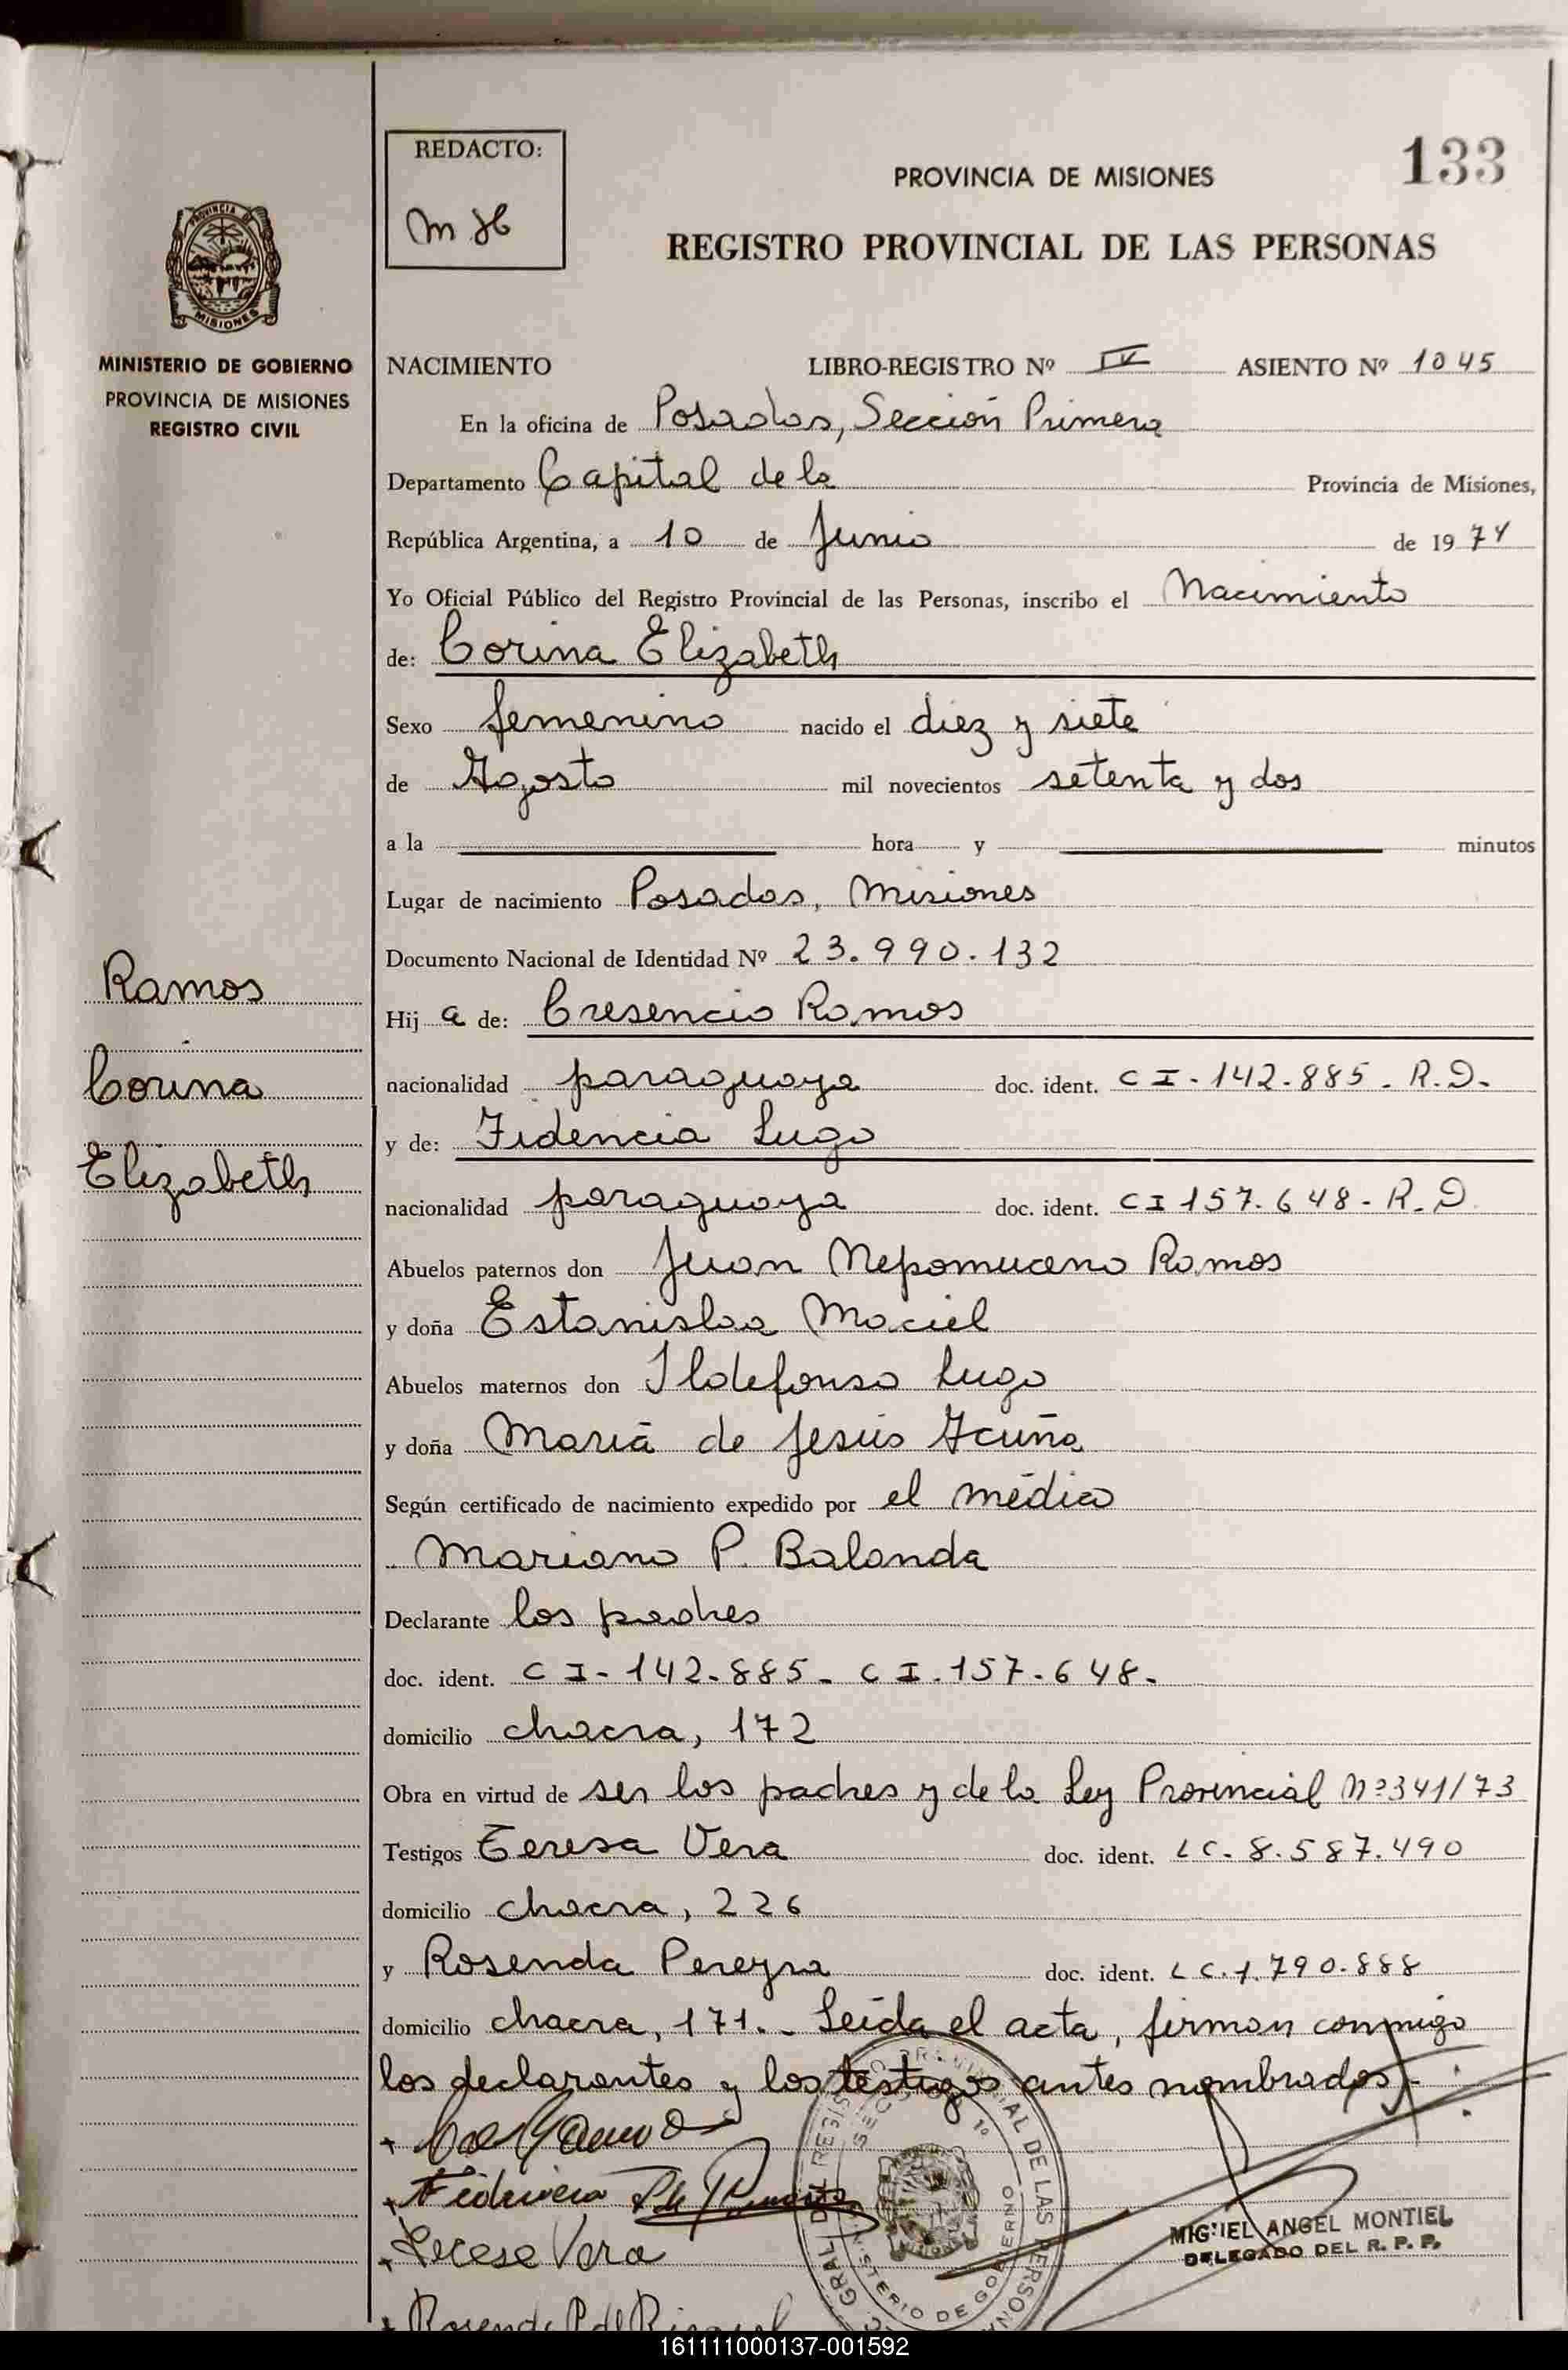 133
REDACTO:
PROVINCIA DE MISIONES
REGISTRO PROVINCIAL DE LAS PERSONAS
PROVINCIA DE
MISIONES
MINISTERIO DE GOBIERNO
PROVINCIA DE MISIONES
REGISTRO CIVIL
NACIMIENTO LIBRO-REGISTRO Nº IV ASIENTO Nº 1045
En la oficina de Posadas, Sección Primera
Departamento Capital de la Provincia de Misiones,
República Argentina, a 10 de Junio de 1974
Yo Oficial Público del Registro Provincial de las Personas, inscribo el Nacimiento
de: Corina Elizabeth
Sexo femenino nacido el diez y siete
de Agosto mil novecientos setenta y dos
a la hora y minutos
Lugar de nacimiento Posadas, Misiones
Documento Nacional de Identidad Nº 23.990.132
Ramos
Corina
Elizabeth
Hij a de: Cresencio Ramos
nacionalidad paraguaya doc. ident. CI-142.885-R.D-
y de: Fidencia Lugo
nacionalidad paraguaya doc. ident. CI 157.648-R.D
Abuelos paternos don Juan Nepomuceno Ramos
y doña Estanislaa Maciel
Abuelos maternos don Ildefonso Lugo
y doña María de Jesús Acuña
Según certificado de nacimiento expedido por el médico
Mariano P. Balanda
Declarante los padres
doc. ident. CI-142-885- CI.157-648-
domicilio chacra, 172
Obra en virtud de ser los padres y de la Ley Provincial Nº341/73
Testigos Teresa Vera doc. ident. LC-8.587.490
domicilio chacra, 226
y Rosenda Pereyra doc. ident. LC.1.790.888
domicilio chacra, 171.- Leída el acta, firman conmigo
los declarantes y los testigos antes nombrados.-
Vera
MIGUEL ANGEL MONTIEL
DELEGADO DEL R. P. P.
161111000137-001592